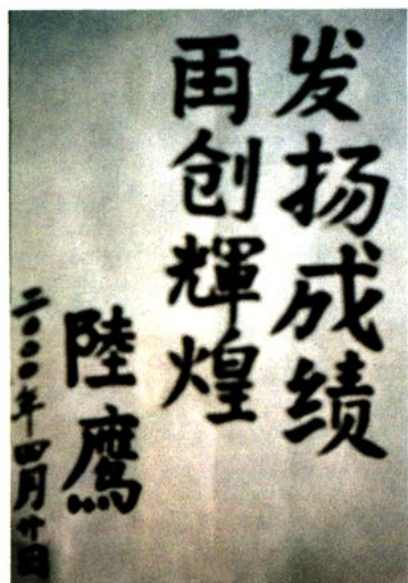 发扬成绩
再创輝煌
陸鹰
二〇〇〇年四月廿日